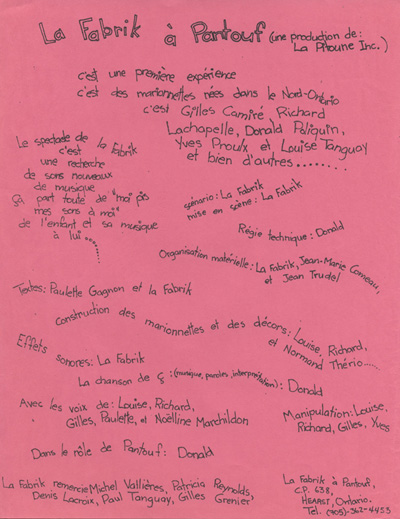 La Fabrik à Pantouf (une production de:
La Phoune Inc.)
c'est une première expérience
c'est des marionnettes nées dans le Nord-Ontario
c'est Gilles Camiré Richard
Lachapelle, Donald Poliquin,
Yves Proulx et Louise Tanguay
et bien d'autres........
Le spectacle de la Fabrik
c'est
une recherche
de sons nouveaux
de musique
Ça part toute de "moi pis
mes sons à moi"
de l'enfant et sa musique
à lui.......
scénario: La Fabrik
mise en scène: La Fabrik
Régie technique: Donald
Organisation matérielle: La Fabrik, Jean-Marie Comeau,
et Jean Trudel
Textes: Paulette Gagnon et la Fabrik
Construction des marionnettes et des décors: Louise, Richard,
et Normand Thério....
Effets sonores: La Fabrik
La chanson de Ç: (musique, paroles, interprétation): Donald
Avec les voix de: Louise, Richard,
Gilles, Paulette, et Noëlline Marchildon
Manipulation: Louise,
Richard, Gilles, Yves
Dans le rôle de Pantouf: Donald
La Fabrik remercie Michel Vallières, Patricia Reynolds,
Denis Lacroix, Paul Tanguay, Gilles Grenier,
La Fabrik à Pantouf,
C.P. 638,
Hearst, Ontario.
Tel. (705)-362-4453